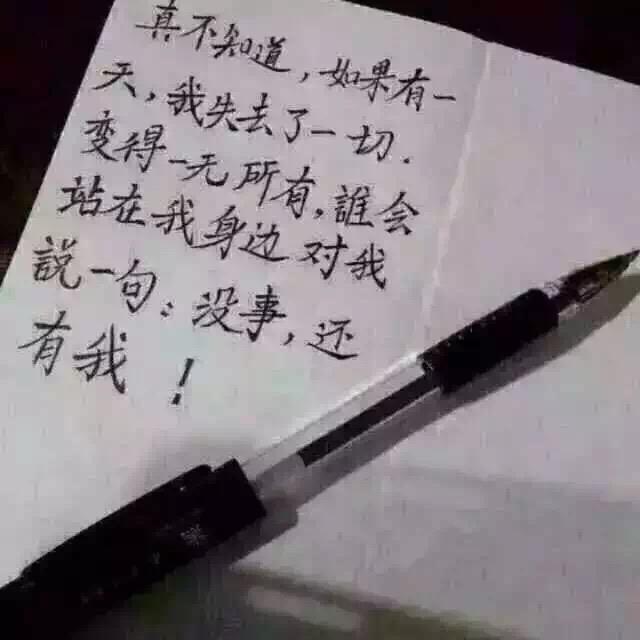 真不知道，如果有一
天，我失去了一切．
变得一无所有，誰会
站在我身边对我
説一句：没事，还
有我！